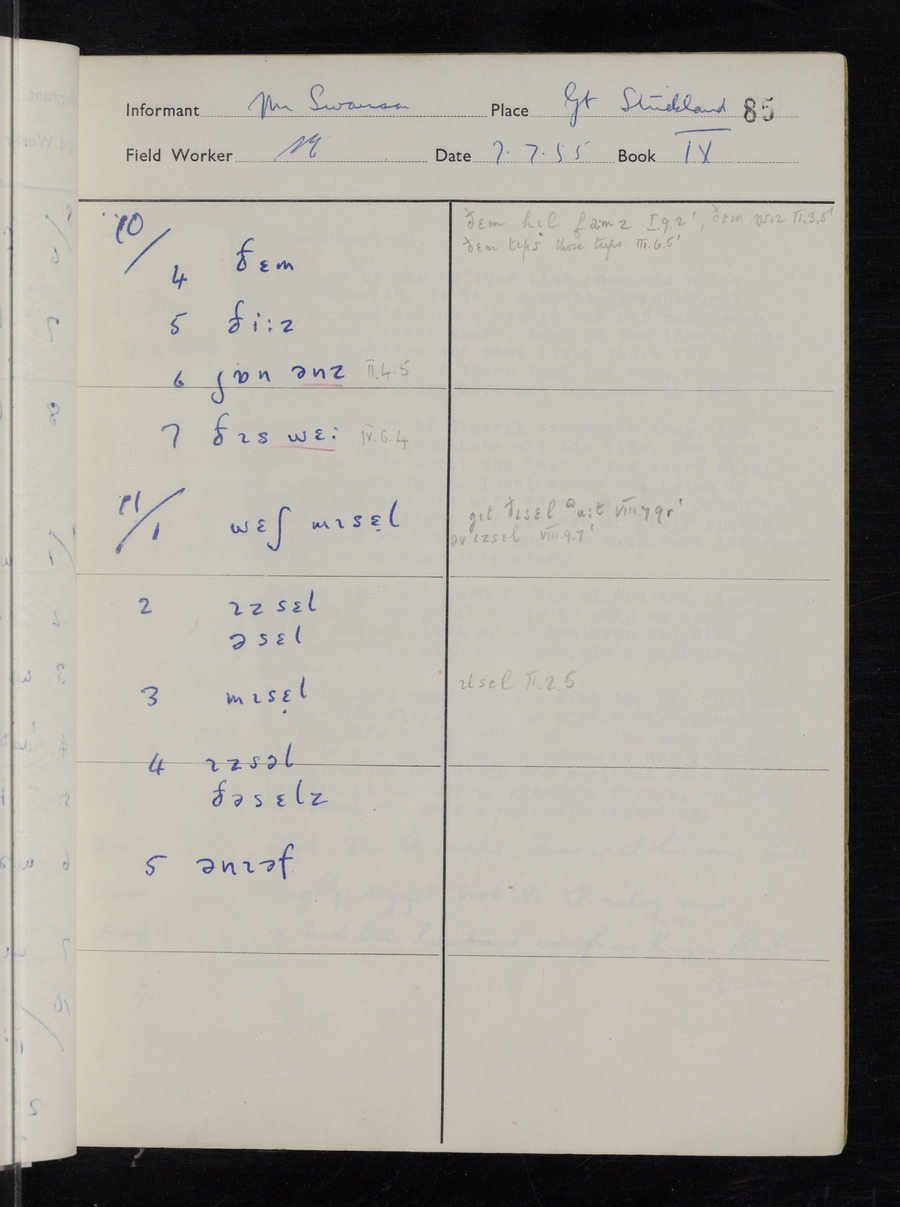 Informant Mr Swanson Place Gt Strickland 85
Field Worker Date 7.7.55 Book IX
10/
4 ðɛm
5 ði:z
6 ðan ənz II.4.5
7 ðɪs wɛ: IV.6.4
ðɛm hɪl famz I.9.2', ðɛm II.3.5'
ðɛm tɪps those tups III.6.5'
11/1 wɛʃ mɪsɛl
gɪt ðɪsɛl VIII.7.9r'
əv ɪzsɛl VIII.9.7'
2 ɪzsɛl
əsɛl
3 mɪsɛl
ɪtsɛl II.2.5
4 ɪzsəl
ðəsɛlz
5